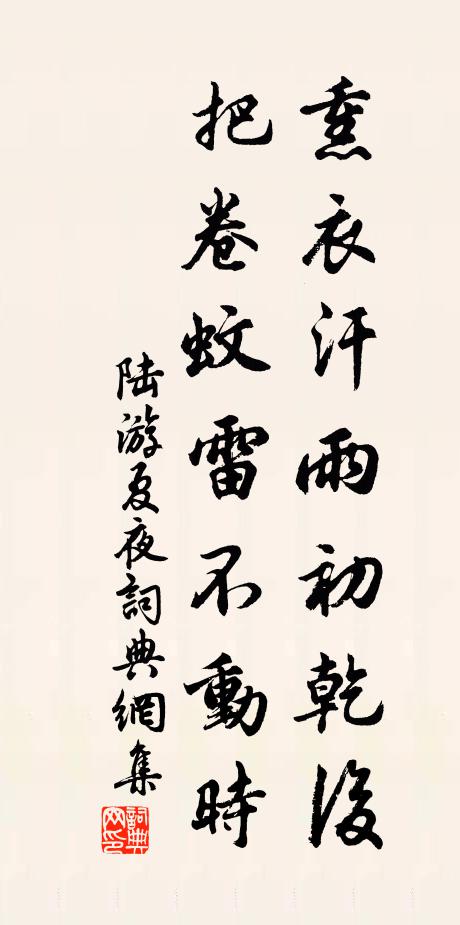 熏衣汗雨初乾後
把卷蚊雷不動時
陆游夏夜詞典網集
詞典网印